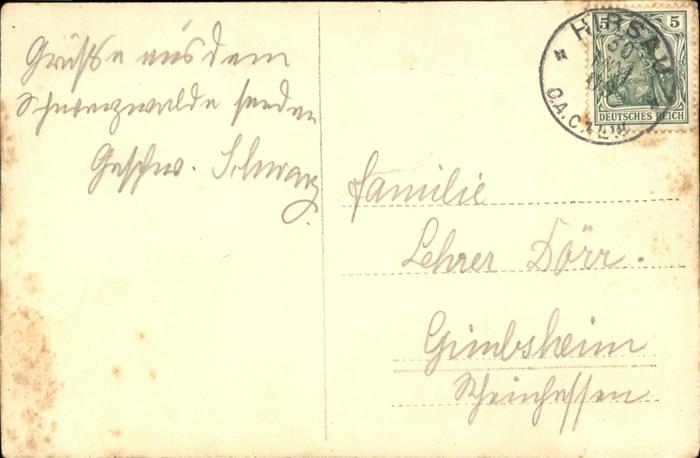 Grüsse aus dem
Schwarzwalde senden
Geschw. Schwarz.
5 5
DEUTSCHES REICH
HIRSAU
30
O.A.CALW
Familie
Lehrer Dörr.
Gimbsheim
Rheinhessen